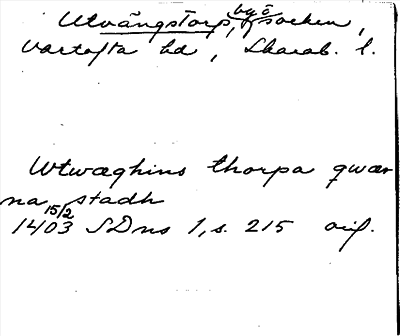 Utvängstorp, Utvängstorps socken,
Vartofta hd, Skarab. l.
Wtwæghins thorpa qwær
na stadh
15/2
1403 SDns 1, s. 215 orig.